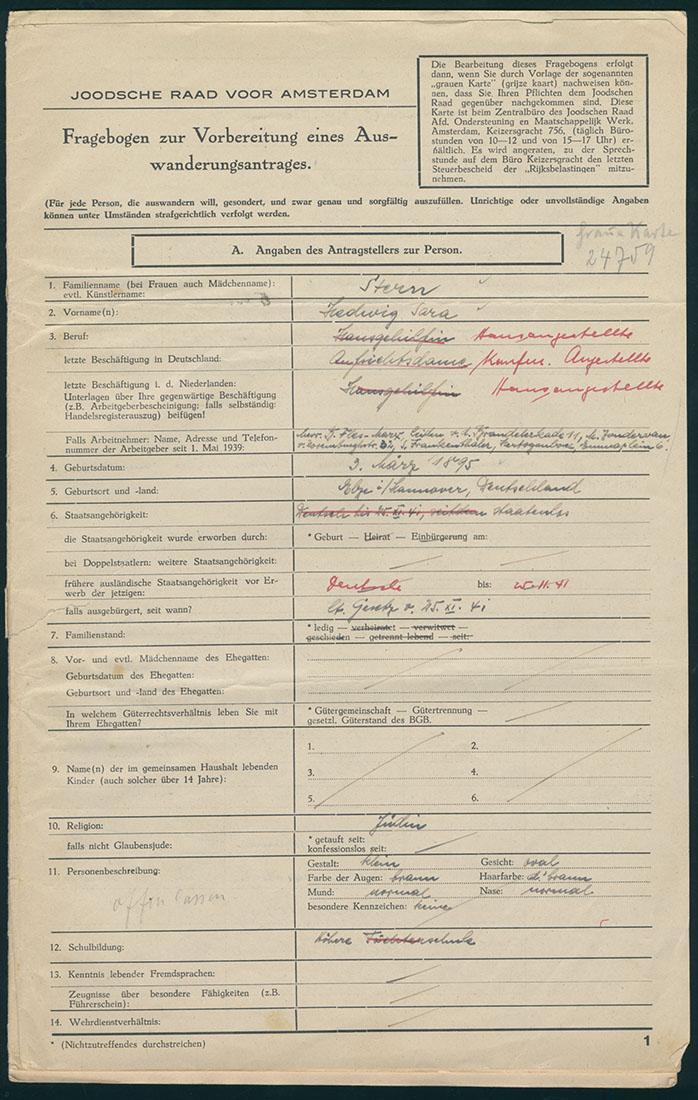 JOODSCHE RAAD VOOR AMSTERDAM
Fragebogen zur Vorbereitung eines Aus-
wanderungsantrages.
Die Bearbeitung dieses Fragebogens erfolgt
dann, wenn Sie durch Vorlage der sogenannten
„grauen Karte" (grijze kaart) nachweisen kön-
nen, dass Sie Ihren Pflichten dem Joodschen
Raad gegenüber nachgekommen sind. Diese
Karte ist beim Zentralbüro des Joodschen Raad
Afd. Ondersteuning en Maatschappelijk Werk,
Amsterdam, Keizersgracht 756, (täglich Büro-
stunden von 10—12 und von 15—17 Uhr) er-
hältlich. Es wird angeraten, zu der Sprech-
stunde auf dem Büro Keizersgracht den letzten
Steuerbescheid der „Rijksbelastingen" mitzu-
nehmen.
(Für jede Person, die auswandern will, gesondert, und zwar genau und sorgfältig auszufüllen. Unrichtige oder unvollständige Angaben
können unter Umständen strafgerichtlich verfolgt werden.
graue Karte
24759
A. Angaben des Antragstellers zur Person.
1. Familienname (bei Frauen auch Mädchenname): Stern
evtl. Künstlername:
2. Vorname(n): Hedwig Sara
3. Beruf: Hausgehilfin Hausangestellte
letzte Beschäftigung in Deutschland: Aufsichtsdame / Kaufm. Angestellte
letzte Beschäftigung i. d. Niederlanden: Hausgehilfin Hausangestellte
Unterlagen über Ihre gegenwärtige Beschäftigung
(z.B. Arbeitgeberbescheinigung; falls selbständig:
Handelsregisterauszug) beifügen!
Falls Arbeitnehmer: Name, Adresse und Telefon-
nummer der Arbeitgeber seit 1. Mai 1939:
4. Geburtsdatum: 3. März 1895
5. Geburtsort und -land: Elze i/Hannover, Deutschland
6. Staatsangehörigkeit: Deutsch bis 25. XI. 41, seitdem staatenlos
die Staatsangehörigkeit wurde erworben durch: * Geburt — Heirat — Einbürgerung am:
bei Doppelstaatlern: weitere Staatsangehörigkeit:
frühere ausländische Staatsangehörigkeit vor Er- Deutsche bis: 25.11.41
werb der jetzigen:
falls ausgebürgert, seit wann? lt. Gesetz v. 25. XI. 41
7. Familienstand: * ledig — verheiratet — verwitwet —
geschieden — getrennt lebend — seit:
8. Vor- und evtl. Mädchenname des Ehegatten:
Geburtsdatum des Ehegatten:
Geburtsort und -land des Ehegatten:
In welchem Güterrechtsverhältnis leben Sie mit * Gütergemeinschaft — Gütertrennung —
Ihrem Ehegatten? gesetzl. Güterstand des BGB.
9. Name(n) der im gemeinsamen Haushalt lebenden
Kinder (auch solcher über 14 Jahre):
1. 2.
3. 4.
5. 6.
10. Religion: Jüdin
falls nicht Glaubensjude: * getauft seit:
konfessionslos seit:
11. Personenbeschreibung: Gestalt: klein Gesicht: oval
Farbe der Augen: braun Haarfarbe: d'braun
Mund: normal Nase: normal
offen lassen besondere Kennzeichen: keine
12. Schulbildung: Höhere Töchterschule
13. Kenntnis lebender Fremdsprachen:
Zeugnisse über besondere Fähigkeiten (z.B.
Führerschein):
14. Wehrdienstverhältnis:
* (Nichtzutreffendes durchstreichen) 1